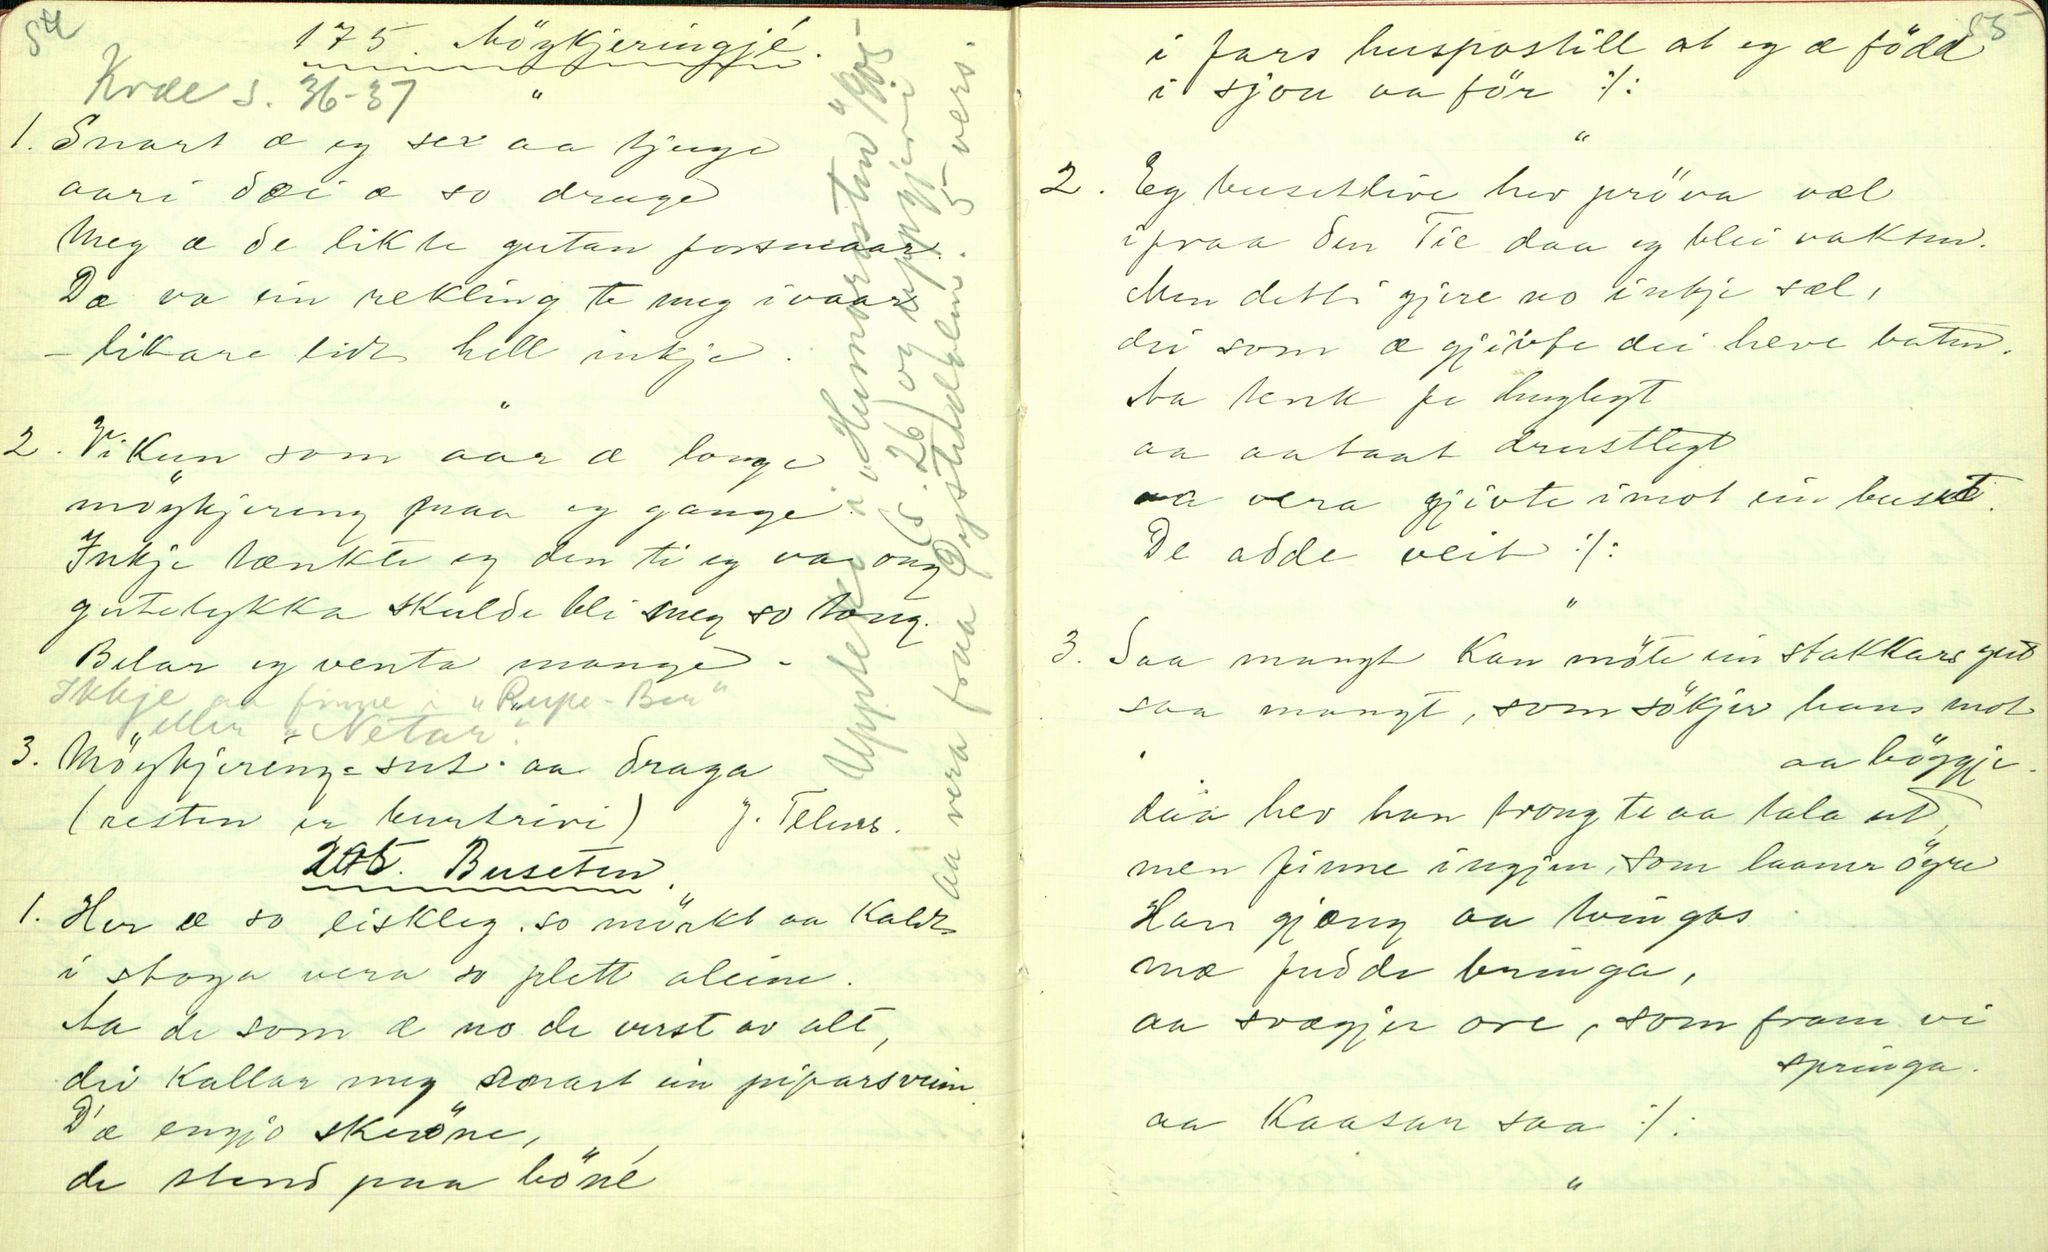 54
175. Möykjeringjé.
Kvæe s. 36-37
"
1. Snart æ eg sex aa tjuge
aari dæi æ so druge
Meg æ de likte gutan forsmaar.
Dæ va ein rekling te meg ivaar
– likare eidt hell inkje.
"
2. Vikun som aar æ longe
möykjering fraa eg gange.
Inkje tænkte eg den ti eg va ong
gutelykka skulde bli meg so tong.
Belar eg venta mange –
Ikkje aa finne i "Rupe-Ber"
eller "Netar".
3. Möykjering-sut aa draga
(resten er burtrivi) J. Telnes.
Upptekje i "Humoristen" 1905
(s. 26) og uppgjeve
aa vera fraa Dystedalen. 5 vers.
205. Buseten.
1. Her æ so eiskleg, so mörkt aa kaldt
i stoga vera so plett aleine.
Aa de som æ no de verst av alt,
dei kallar meg snart ein piparsvein
D'æ engjo skröne,
de stend paa böné
85
i fars huspostill at eg æ född
i sjou aaför :/:
"
2. Eg busetlive hev pröva væl
ifraa den Tie daa eg blei vaksen.
Men detti gjere no inkje sæl,
dei som æ gjivte dei heve baten.
Aa tenk fe hugleg
aa aataat drustlegt
aa vera gjivte imot ein buset.
De adde veit :/:
"
3. Saa mangt kan möte ein stakkars gut
saa mangt, som sökjer hans mot
aa böygje.
daa hev han trong te aa tala ut,
men finne ingjen, som laaner öyre
Han gjæng aa tvingas
mæ fudde bringa,
aa svægjer ore, som fram vi
springa.
aa kaasar saa :/:
"